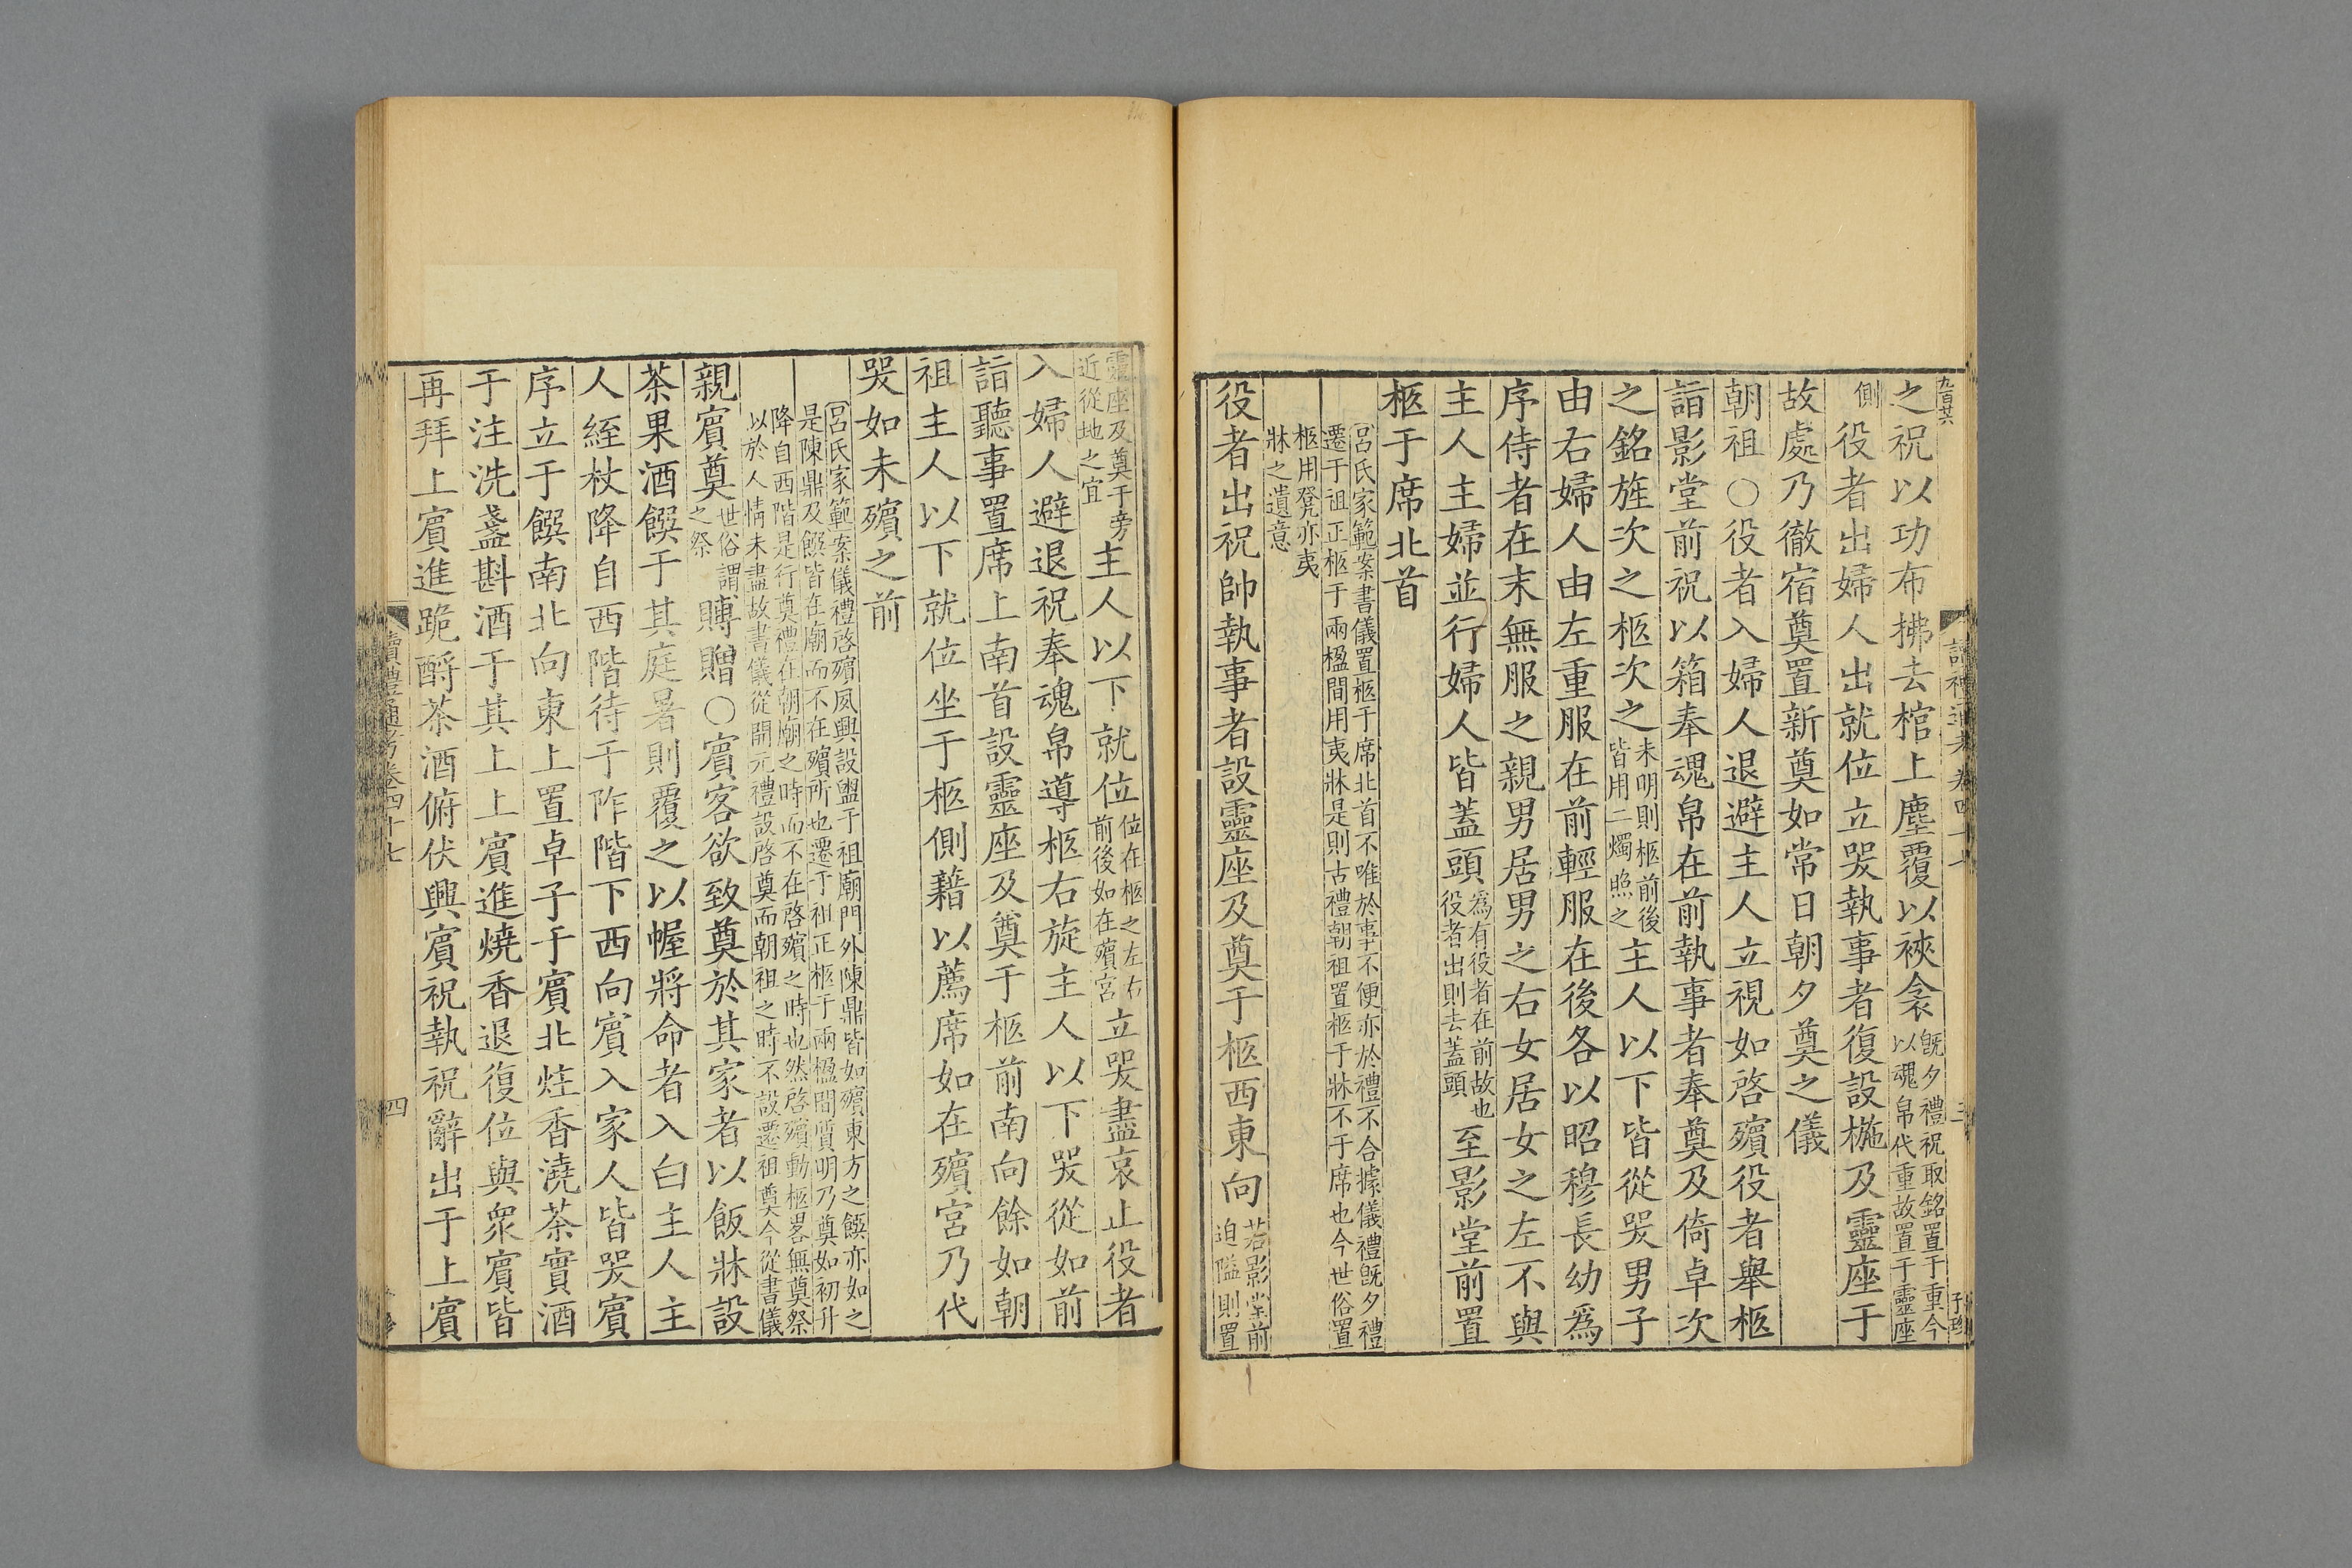 九百廿六
之祝以功布拂去棺上塵覆以裌衾既夕禮祝取銘置于重今以魂帛代重故置于靈座
側役者出婦人出就位立哭執事者復設椸及靈座于
故處乃徹宿奠置新奠如常日朝夕奠之儀
朝祖○役者入婦人退避主人立視如啓殯役者舉柩
詣影堂前祝以箱奉魂帛在前執事者奉奠及倚卓次
之銘旌次之柩次之未明則柩前後皆用二燭照之主人以下皆從哭男子
由右婦人由左重服在前輕服在後各以昭穆長幼爲
序侍者在末無服之親男居男之右女居女之左不與
主人主婦並行婦人皆蓋頭爲有役者在前故也役者出則去蓋頭至影堂前置
柩于席北首
呂氏家範案書儀置柩于席北首不唯於事不便亦於禮不合據儀禮既夕禮
遷于祖正柩于兩楹間用夷牀是則古禮朝祖置柩于牀不于席也今世俗置
柩用凳亦夷
牀之遺意
役者出祝帥執事者設靈座及奠于柩西東向若影堂前迫隘則置
讀禮通考卷四十七
三
靈座及奠于旁近從地之宜主人以下就位位在柩之左右前後如在殯宮立哭盡哀止役者
入婦人避退祝奉魂帛導柩右旋主人以下哭從如前
詣聽事置席上南首設靈座及奠于柩前南向餘如朝
祖主人以下就位坐于柩側藉以薦席如在殯宮乃代
哭如未殯之前
呂氏家範案儀禮啓殯夙興設盥于祖廟門外陳鼎皆如殯東方之饌亦如之
是陳鼎及饌皆在廟而不在殯所也遷于祖正柩于兩楹間質明乃奠如初升
降自西階是行奠禮在朝廟之時而不在啓殯之時也然啓殯動柩畧無奠祭
以於人情未盡故書儀從開元禮設啓奠而朝祖之時不設遷祖奠今從書儀
親賓奠世俗謂之祭賻贈○賓客欲致奠於其家者以飯牀設
茶果酒饌于其庭暑則覆之以幄將命者入白主人主
人絰杖降自西階待于阼階下西向賓入家人皆哭賓
序立于饌南北向東上置卓子于賓北炷香澆茶實酒
于注洗盞斟酒于其上上賓進燒香退復位與眾賓皆
再拜上賓進跪酹茶酒俯伏興賓祝執祝辭出于上賓
讀禮通考卷四十七
四